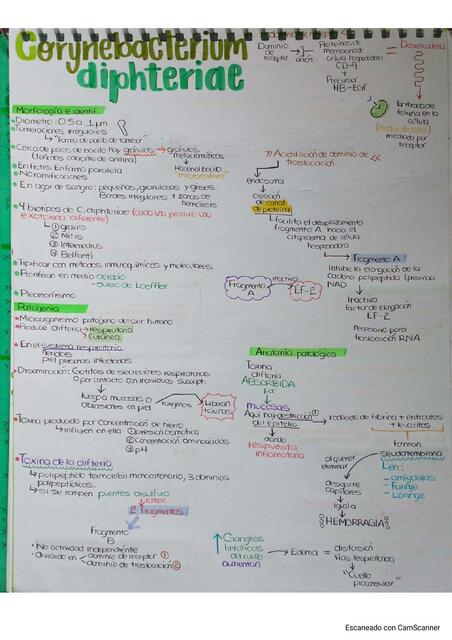 Corynebacterium
diphteriae
Dominio de receptor → unión → Proteínas de membrana de célula hospedadora
CD-9
+
Precursor
HB-EGF
= Desencadena
Entrada de toxina en la célula
(endocitosis)
mediado por receptor
Morfología e identif.
Diámetro: 0.5 a 1 µm
Tumeraciones irregulares
"Forma de palillo de tambor"
Cerca de polos de bacilo hay gránulos → Gránulos metacromáticos
(teñidos: colorante de anilina)
En frotis: En forma paralela
No ramificaciones
En agar de sangre: pequeñas, granulosas y grises
Bordes irregulares + zonas de hemólisis
4 biotipos de C. diphteriae (cada uno produce una exotoxina diferente)
① gravis
② Mitis
③ Intermedius
④ Belfanti
Tipificar con métodos inmunoquímicos y moleculares
Proliferan en medio aerobio
suero de Loeffler
Pleomorfismo
» Acidificación de dominio de translocación «
endosoma
creación de canal de proteína
Facilita el desplazamiento
fragmento A hacia el
citoplasma de célula
hospedadora
Fragmento A
Inhibe la elongación de la
cadena polipeptída (precisa
NAD
Inactiva
factor de elongación
EF-2
Necesario para
traslocación RNA
Fragmento A
inactiva
EF-2
Patogenia
Microorganismo patógeno del ser humano
Produce difteria → respiratoria
Cutánea
En el sistema respiratorio
heridas
piel personas infectadas
Diseminación: Gotitas de secreciones respiratorias
o por contacto con individuos suscept.
luego a mucosas o
abrasiones en piel
Liberan toxinas
Toxina producida por concentración de hierro
influyen en ella ① Presión osmótica
② Concentración aminoácidos
③ pH
Toxina de la difteria
polipéptido termolábil monocatenario, 3 dominios
polipeptídicos.
Si se rompen puentes disulfuro
rompe
2 Fragmentos
Fragmento
B
No actividad independiente
dividido en dominio de receptor ①
dominio de traslocación ②
Anatomía patológica
Toxina
difteria
ABSORBIDA
por
mucosas
Aquí hay destrucción del epitelio → rodeado de fibrina + eritrocitos
+ leucocitos
dando
respuesta
inflamatoria
forman
Seudomembrana
al querer
eliminar
En:
- amígdalas
- Faringe
- Laringe
desgarre
capilares
igual a
HEMORRAGIA!
Ganglios
linfáticos
del cuello
aumentan
→ Edema = distorsión
Vías respiratorias
"Cuello
proconsular"
Escaneado con CamScanner